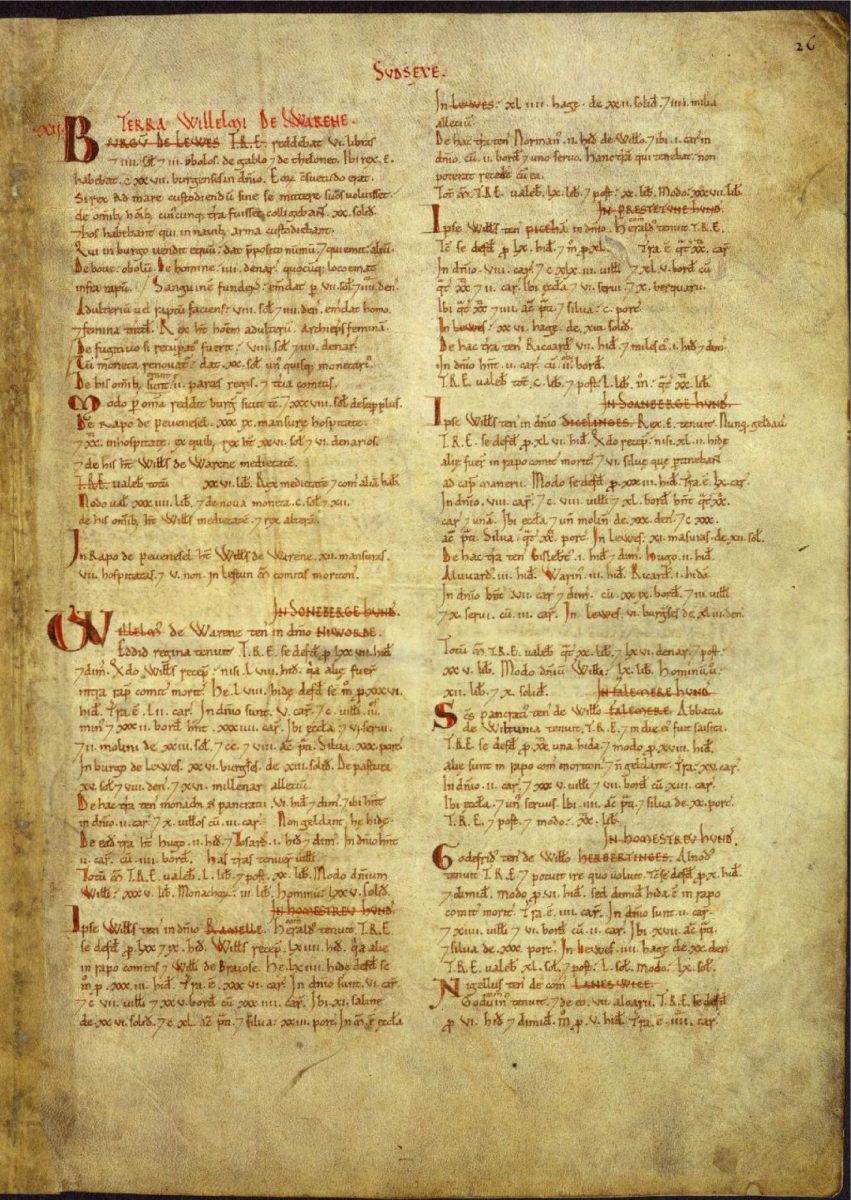 26
SUDSEXE.
XII. TERRA WILLELMI DE WARENE.
BURGU DE LEWES T.R.E. reddebat vi. libras
7 iiii. sol 7 iii. obolos. de gablo 7 de theloneo. Ibi rex. E.
habebat. cxxvii. burgenses in dnio. Eoꝝ csuetudo erat.
Si rex ad mare custodiendu sine se mittere suos voluisset.
de omib hoib cuicunq tra fuisset colligebant xx. solid.
7 hos habebant qui in navib arma custodiebant.
Qui in burgo vendit equu: dat pposito numu. 7 qui emit: aliu.
De bove: obolu. De homine: iiii. denar. quocuq loco emat
infra rapu. Sanguine fundens: emdat p vii. sol 7 iiii. den.
Adulteriu vel raptu faciens: viii. sol 7 iiii. den. emdat homo.
7 femina tntd. Rex ht hoem adulteru. archieps femina.
De fugitivo si recupatus fuerit: viii. sol 7 iiii. denar.
Cu moneta renovatur: dat xx. sol un quisq monetarius.
De his omib erant .ii. partes regis. 7 tcia comitis.
Modo p omia reddit burg sicut tc. 7 xxxviii. sol desuper plus.
De Rapo de pevenesel. xxxix. mansure hospitate.
7 xx. inhospitate. ex quib rex ht xxvi. sol 7 vi. denarios.
7 de his ht Wills de Warene medietate.
T.R.E. valeb totu xxvi. lib. Rex medietate 7 com alia hab.
Modo val xxxiiii. lib. 7 de nova moneta. c. sol 7 xii.
de his omib ht Wills medietate 7 rex altera.
In Rapo de pevenesel ht Wills de Warene. xii. mansuras.
vii. hospitatas. 7 v. non.
IN SONEBERGE HUND.
Willelm de Warene ten in dnio NIWORDE.
Eddid regina tenuit. T.R.E. se defd p lxxvii. hid
7 dim. Qdo Wills recep: nisi lviii. hid. qa alie fuer
intra rap comit morit. He lviii. hide defd se m p xxxvi.
hid. Tra e lii. car. In dnio sunt v. car. 7 c. villi iii.
min 7 xxxii. bord hnt xxxiiii. car. Ibi eccla 7 vi servi.
7 ii. molini de xxiii. sol. 7 cc. 7 viii. ac pti. Silva. xxx. porc.
In burgo de Lewes. xxvi. burgses. de xiii. solid. De pastura
xv. sol 7 viii. den. 7 xvi. millenar allecium.
De hac tra ten monachi s pancratii vi. hid 7 dim. 7 ibi hnt
in dnio .ii. car. 7 x. villos cu iii. car. Non geldant he hide.
De ead tra ht Hugo. ii. hid. 7 Tosard .i. hid 7 dim. In dnio hnt
ii. car. cu iiii. bord. Has tras tenuer villi.
Totu m T.R.E. valeb. l. lib. 7 post: xx. lib. Modo dnium
Willi: xxxv. lib. Monachoꝝ: iii. lib. Hominu: lxxv. solid.
IN HOMESTREU HUND.
Ipse Wills ten in dnio RAMELLE. Herald com tenuit. T.R.E.
se defd p lxx 7 ix. hid. Wills recep. lxiiii. hid. qa alie
in rapo comitis 7 Willi de Braiose. He lxiiii. hide defd se
m p xxxiii. hid. Tra e xxxvi. car. In dnio sunt. vi. car.
7 c. viii. villi 7 xxv. bord cu xxxiiii. car. Ibi xi. saline
de xxvi. solid. 7 c xl. ac pti. 7 silva: xxiii. porc. In m e eccla
In LEWES: xliiii. hage. de xxii. solid. 7 iiii. milia
alleciu.
De hac tra ten Norman. ii. hid de Willo. 7 ibi .i. car in
dnio. cu ii. bord 7 uno servo. Hanc tra qui tenebat: non
poterat recede cu ea.
Tot m T.R.E. valeb lx. lib. 7 post: xx. lib. Modo: xxxvii. lib.
IN PRESTETUNE HUND.
Ipse Wills ten PICEHA in dnio. Herald com tenuit T.R.E.
Tc se defd p lx. hid. 7 m p xl. Tra e qt xx. car.
In dnio. viii. car. 7 c xlix. iii. villi 7 xlv. bord cu
qt xx. 7 ii. car. Ibi eccla 7 vi. servi. 7 x. bercarii.
Ibi qt xx 7 iiii. ac pti 7 silva: c. porc.
IN LEWES: xxvi. hage. de. xiii. solid.
De hac tra ten Ricoard. vii. hid. 7 miles ei. i. hid 7 dim.
In dnio hnt .ii. car. cu ii. bord.
T.R.E. valeb tot. c. lib. 7 post: l. lib. m: qt xx. lib.
IN SOANBERGE HUND.
Ipse Wills ten in dnio DICELINGES. Rex. E. tenuit. Nunq geldau.
T.R.E. se defd p xlvi. hid. Qdo recep. nisi. xl.ii. hide
alie fuer in rapo comit morit 7 vi. silve que ptinebant
ad cap manerii. Modo se defd p xxxiii. hid. Tra e lx. car.
In dnio. viii. car. 7 c. viii. villi 7 xl. bord hnt qt xx.
car 7 una. Ibi eccla. 7 un molin de. xxx. den. 7 c xxx.
ac pti. Silva: qt xx. porc. In Lewes. xi. masuras. de xii. sol.
De hac tra ten Gislebt .i. hid 7 dim. Hugo .ii. hid.
Aluuard. iii. hid. Warin. iii. hid. Ricard. i. hida
In dnio hnt .vii. car 7 dim. cu xxix. bord. 7 iii. villi
7 x. servi. cu iii. car. In Lewes. vi. burgses de. xliii. den.
Totu m T.R.E. valeb qt xx. lib. 7 lxvi. denar. 7 post:
xxv. lib. Modo dniu Willi: lx. lib. Hominu u:
xii. lib. 7 x. solid. IN FALEMERE HUND.
Scs pancrati ten de Willo FALEMERE. Abbatia
de Wiltunia tenuit. T.R.E. 7 in die ei fuit saisita.
T.R.E. se defd p xx. una hida. 7 modo p xviii. hid.
alie sunt in rapo com moriton. 7 n geldant. Tra: xv. car.
In dnio .ii. car. 7 xxxv. villi 7 vii. bord cu xiii. car.
Ibi eccla. 7 un servus. Ibi. iiii. ac pti. 7 silva de. xx. porc.
T.R.E. 7 post. 7 modo: xx. lib.
IN HOMESTREU HUND.
Godefrid ten de Willo HERBERTINGES. Alnod
tenuit T.R.E. 7 potuit ire quo voluit. Tc se defd p x. hid.
7 dimid. modo p vi. hid. sed dimid hida e in rapo
comit morit. Tra e. iiii. car. In dnio sunt .ii. car.
7 xiiii. villi 7 vi. bord cu ii. car. Ibi xvii. ac pti.
7 silva de. xxx. porc. In Lewes: iiii. hage de. xx. den.
T.R.E. valeb. xl. sol. 7 post: l. sol. modo: lx. sol.
Nigellus ten de com LANESWICE.
Goduin tenuit. 7 de eo. vii. aloarii. T.R.E. se defd
p vi. hid 7 dimid. m p v. hid. Tra e. iiii. car